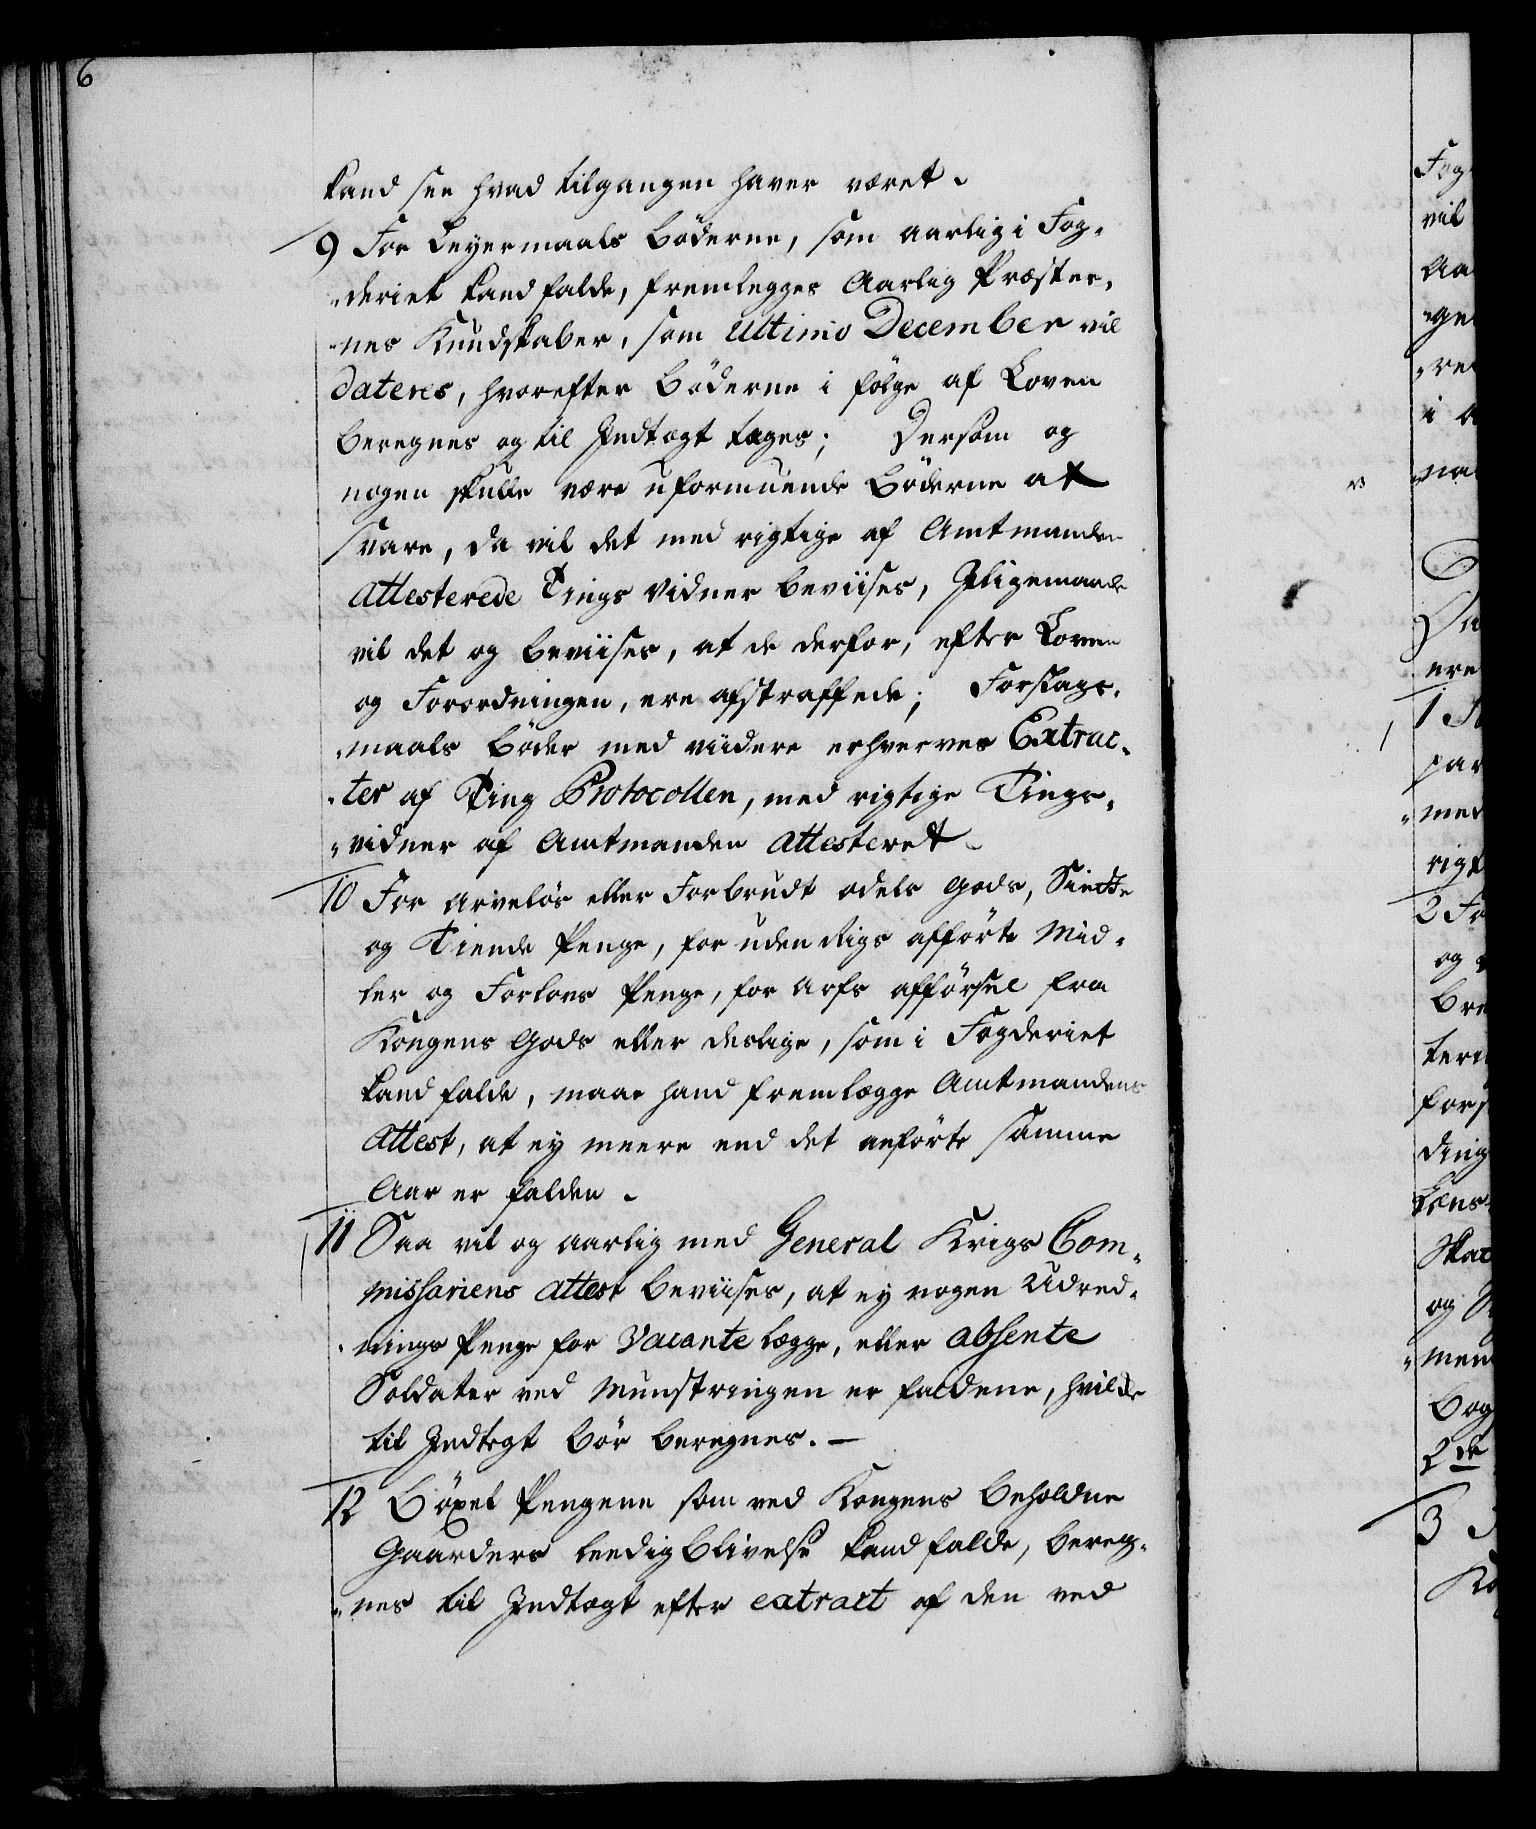 6
kand see hvad tilgangen haver været.
9 For Leyermaals Böderne, som aarlig i Fog-
deriet kand falde, fremlegges Aarlig Præster-
nes Kundskaber, som Ultimo December vil
dateres, hvorefter Böderne i fölge af Loven
beregnes og til Indtægt tages; Dersom og
nogen skulle være uformuende Böderne at
svare, da vil det med rigtige af Amtmanden
Attesterede Tings Vidner beviises, Iligemaade
vil det og beviises, at de derfor, efter Loven
og Forordningen, ere afstraffede; Forstags-
maals Böder med viidere erhverves Extrac-
ter af Ting Protocollen, med rigtige Tings-
vidner af Amtmanden Attesteret.
10 For Arvelös eller Forbrudt odels Gods, Siette
og Tiende Penge, for uden Rigs afförte Mid-
ler og Forlovs Penge, for Arfs afförsel fra
Kongens Gods eller deslige, som i Fogderiet
kand falde, maae hand fremlægge Amtmandens
Attest, at ey meere end det anförte samme
Aar er falden.
11 Saa vil og aarlig med General Krigs Com-
missariens Attest beviises, at ey nogen Udred-
nings Penge for Vacante Lægge, eller Absente
Soldater ved Munstringen er faldene, hvilke
til Indtegt bör beregnes. –
12 Böxel Pengene som ved Kongens beholdne
Gaarders leedig blivelse kand falde, bereg-
nes til Indtægt efter extract af den ved
Fog
vil
Aa
ge
re
i
na
Da
ere
1
par
med
rigt
2 Fo
og
bre
ter
fors
ding
Læns
Skat
og
men
bog
2de
3
Ko